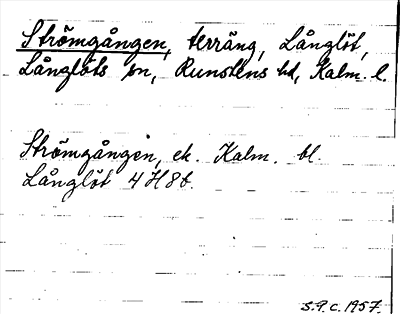 Strömgången, terräng, Långlöt,
Långlöts sn, Runstens hd, Kalm. l.
Strömgången, ek. Kalm. bl.
Långlöt 4 H 8 b.
S.P.C. 1957.